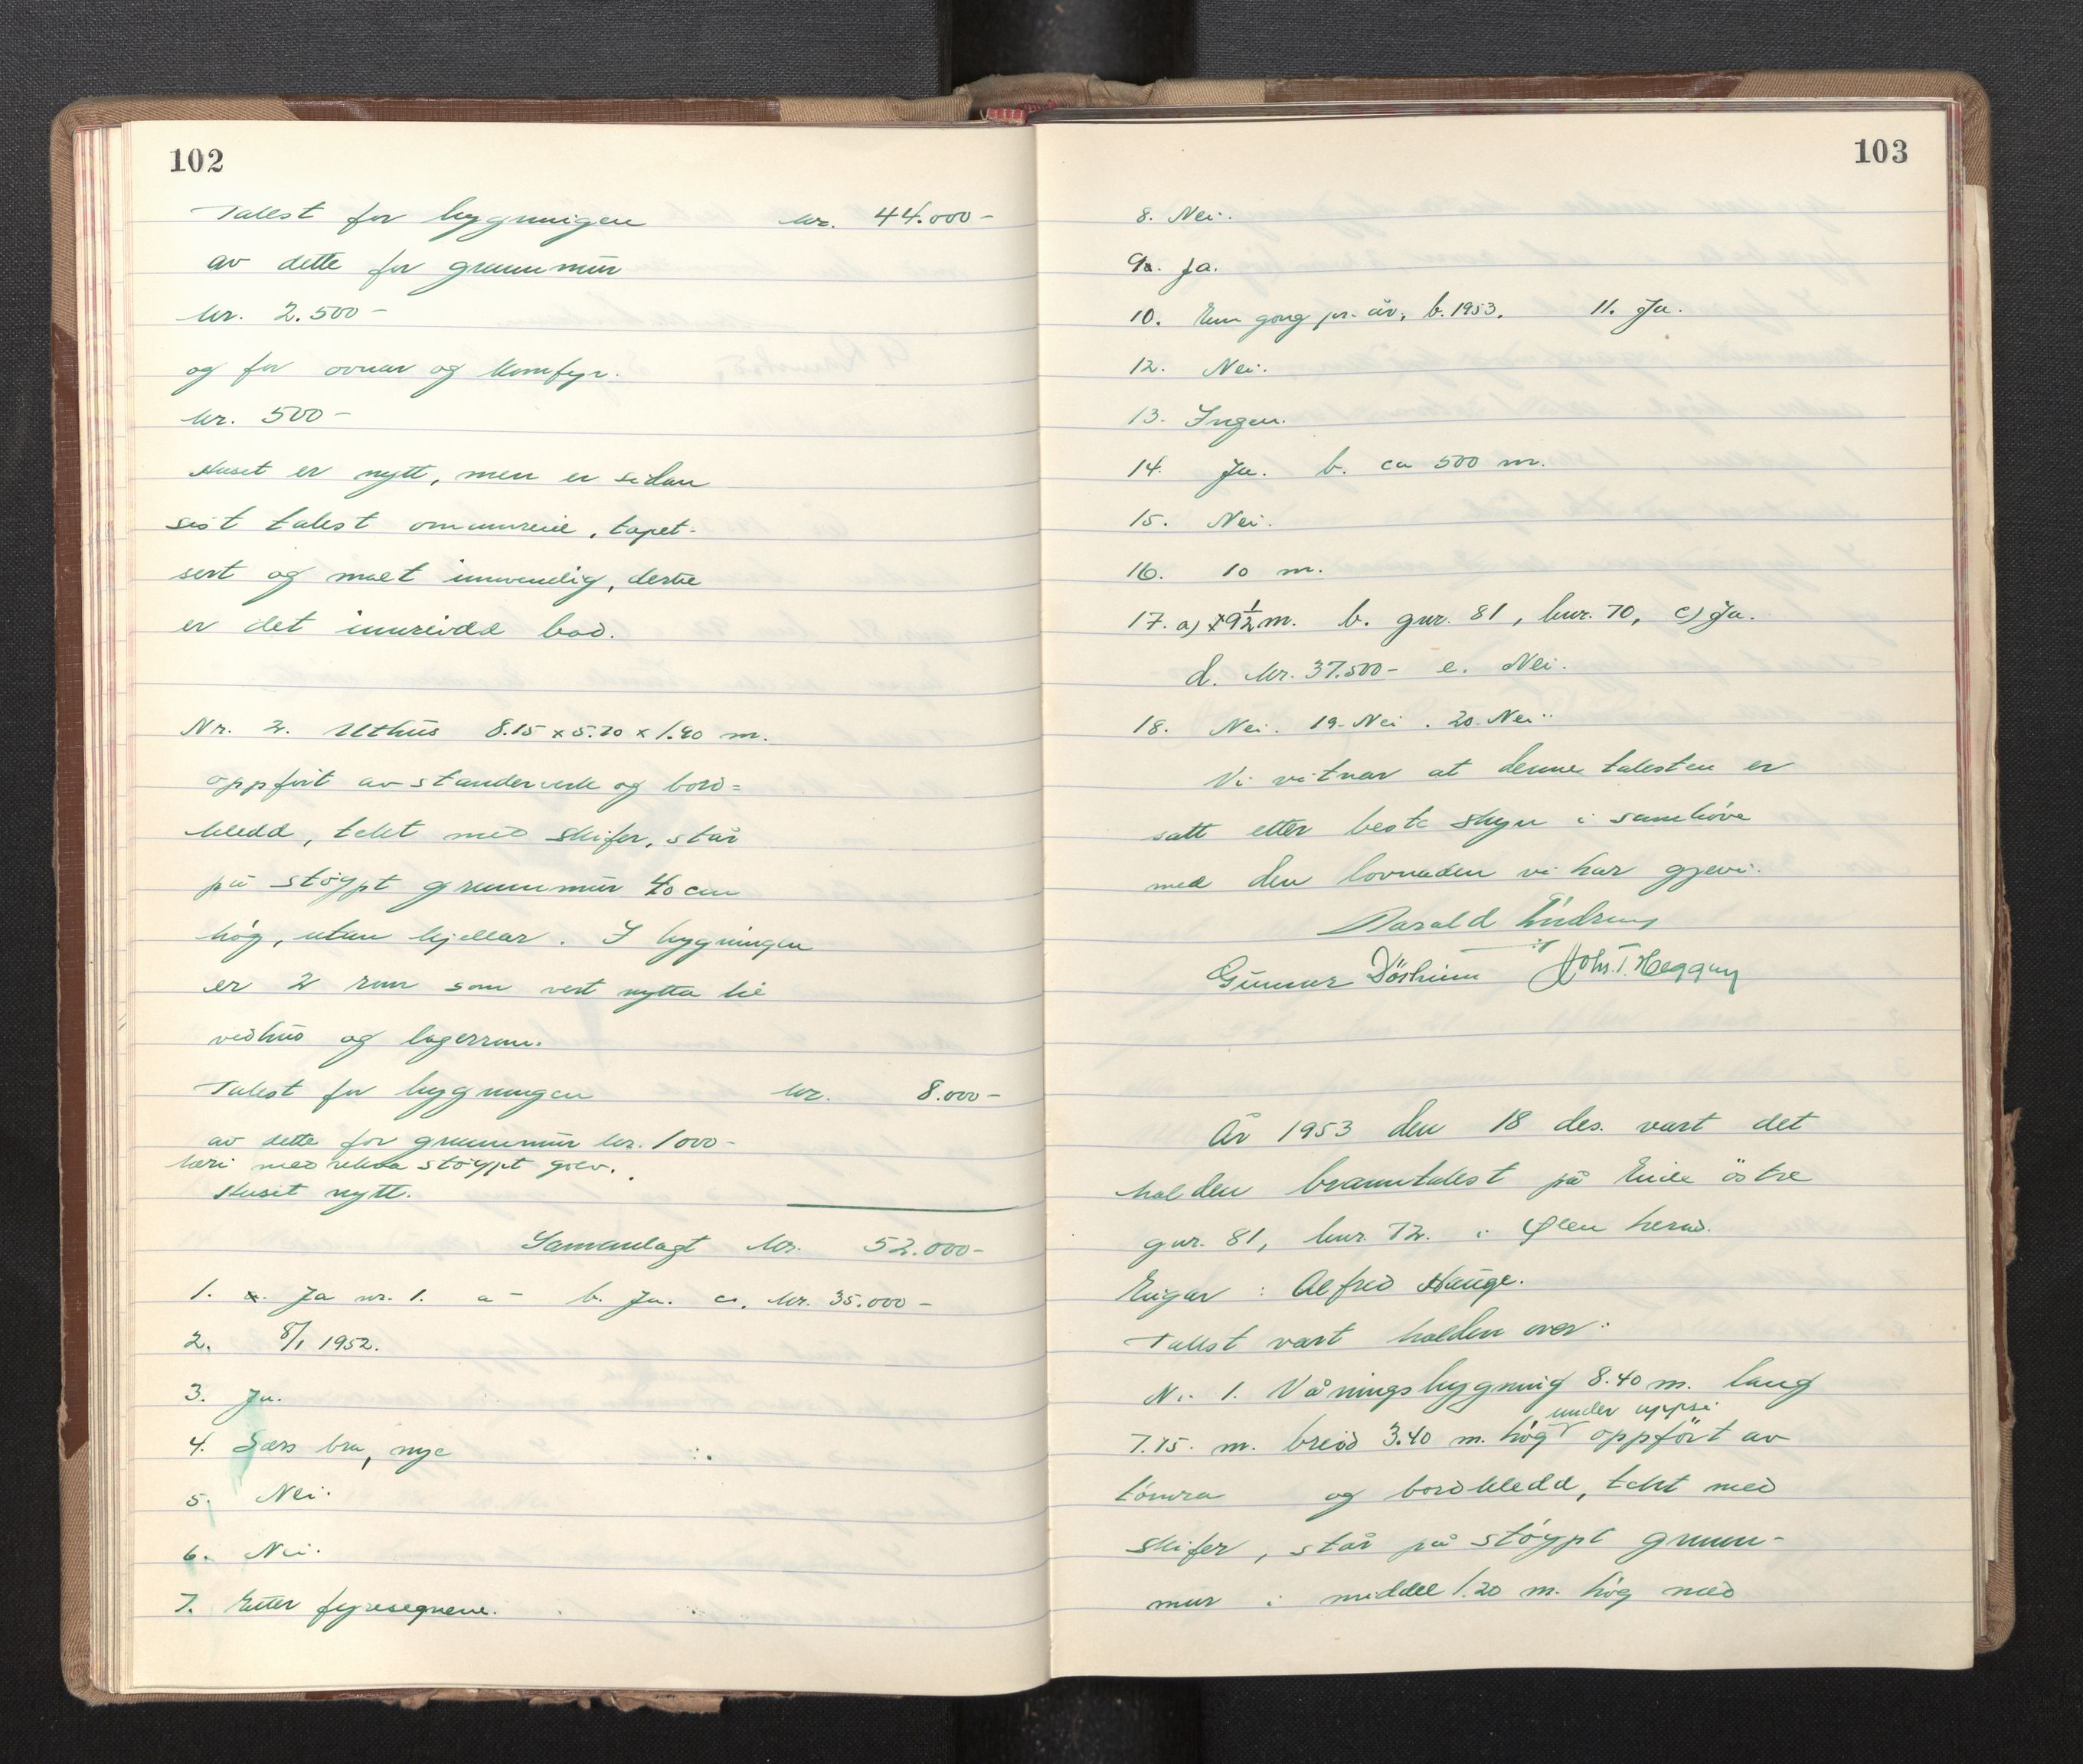 102
Takst for bygningen kr. 44.000-
av dette for grunnmur
kr. 2.500-
og for ovnar og komfyr.
kr. 500-
Huset er nytt, men er sidan
sist takst ominnreiie, tapet-
sert og malt innvendig, dertil
er det innreidd bad.
Nr. 2. Uthus 8.15 x 5.20 x 1.90 m.
oppført av standerverk og bord=
kledd, tekt med skifer, står
på støypt grunnmur 40 cm
høg, utan kjellar. I bygningen
er 2 rum som vert nytta til
vedhus og lagerrum.
Takst for bygningen kr. 8.000-
av dette for grunnmur kr. 1000-
heri medrekna støypt golv.
Huset nytt.
Samanlagt kr. 52.000-
1. Ja nr. 1. a - b. Ja. c. kr. 35.000-
2. 8/1 1952.
3. Ja.
4. Særs bra, nye
5. Nei.
6. Nei.
7. Etter fyresegnene.
103
8. Nei.
9a. Ja.
10. Ein gong pr. år, b. 1953. 11. Ja.
12. Nei.
13. Ingen.
14. Ja. b. ca 500 m.
15. Nei.
16. 10 m.
17. a) 9½ m. b. gnr. 81, bnr. 70, c) Ja.
d. kr. 37.500- e. Nei.
18. Nei. 19. Nei. 20. Nei.
Vi vitnar at denne taksten er
satt etter beste skyn i samhøve
med den lovnaden vi har gjevi.
Harald Endresen
Gunnar Dörheim Johs. T. Heggen
År 1953 den 18 des. vart det
halden branntakst på Eide östre
gnr. 81, bnr. 72. i Ølen herad.
Eigar: Alfred Hauge.
Takst vart halden over:
Nr. 1. Våningsbygning 8.40 m. lang
under uppsi
7.75. m. breid 3.40 m. høg oppført av
tømra og bordkledd, tekt med
skifer, står på støypt grunn-
mur i middel 1.20 m. høg med